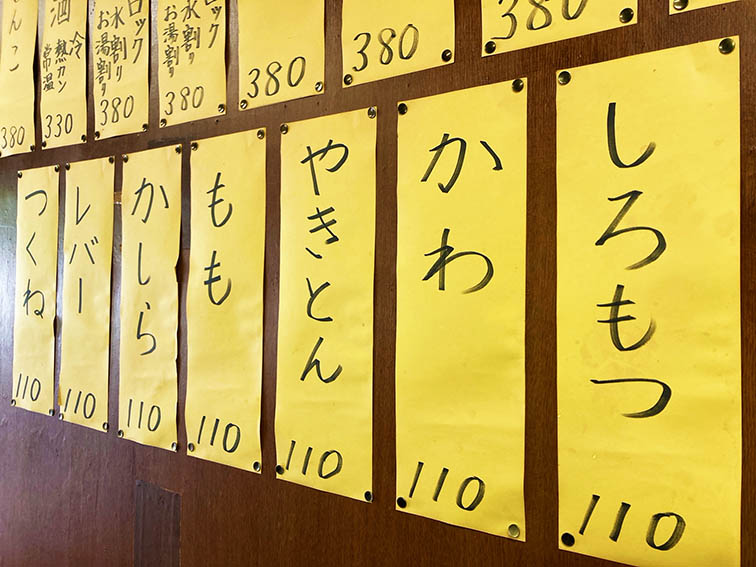 380
380
380
ック
水割り
お湯割り
380
ロック
水割り
お湯割り
380
酒
冷
熱カン
常温
330
んこ
380
しろもつ
110
かわ
110
やきとん
110
もも
110
かしら
110
レバー
110
つくね
110